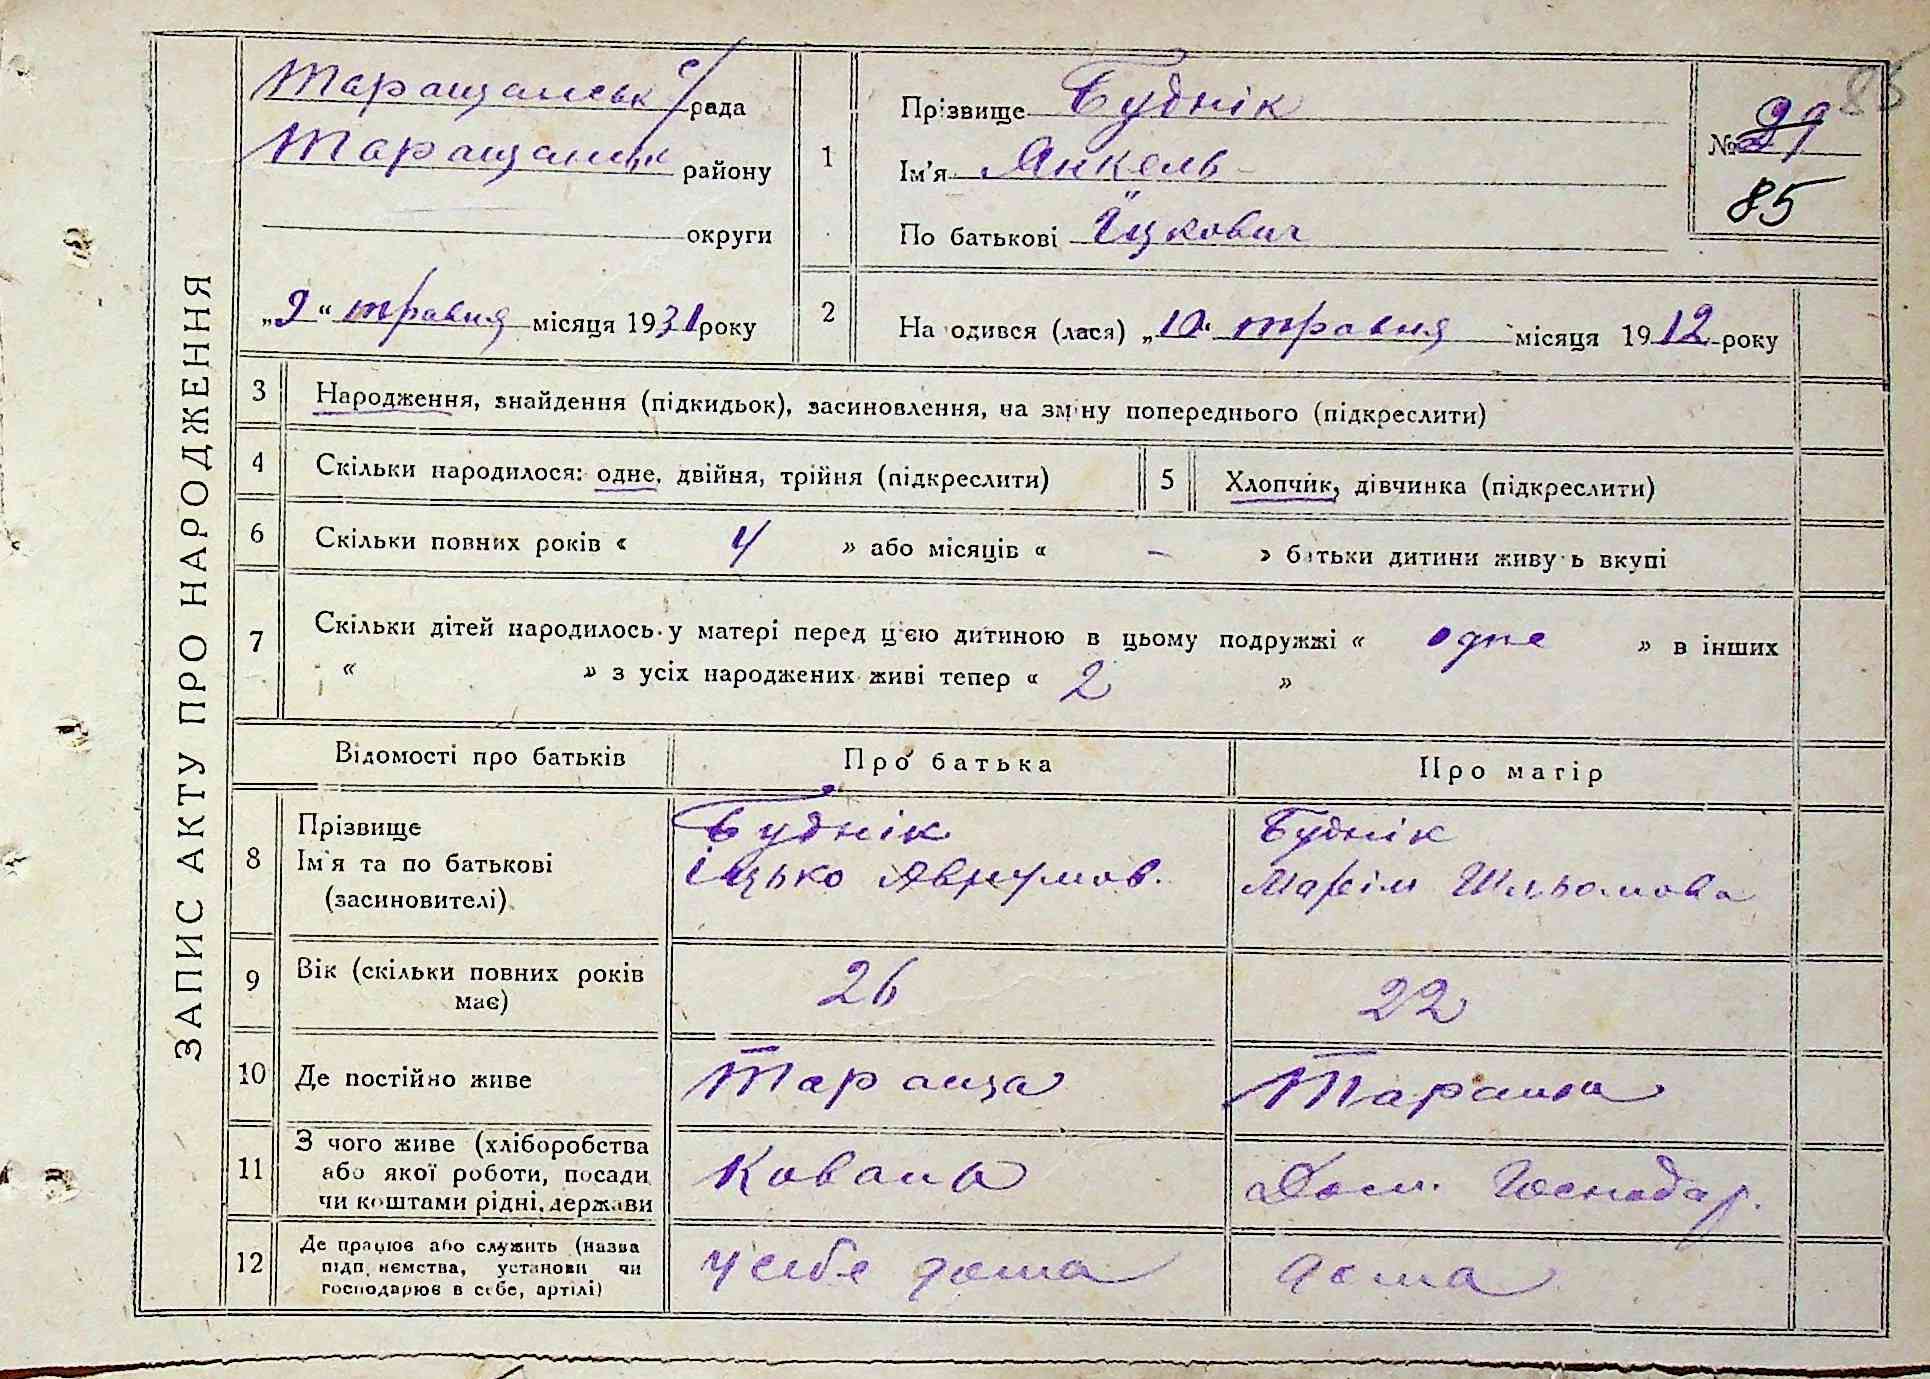 ЗАПИС АКТУ ПРО НАРОДЖЕННЯ
Таращанськ с/рада
Таращанськ району
округи
„9“ травня місяця 1931 року
1
Прізвище Буднік
Ім'я Янкель
По батькові Іцкович
№ 99
85
2
Народився (лася) „10“ травня місяця 1912 року
3 Народження, знайдення (підкидьок), засиновлення, на зміну попереднього (підкреслити)
4 Скільки народилося: одне, двійня, трійня (підкреслити)
5 Хлопчик, дівчинка (підкреслити)
6 Скільки повних років « 4 » або місяців « – » батьки дитини живуть вкупі
7 Скільки дітей народилось у матері перед цією дитиною в цьому подружжі « одне » в інших
« » з усіх народжених живі тепер « 2 »
Відомості про батьків Про батька Про матір
8 Прізвище
Ім'я та по батькові
(засиновителі)
Буднік
Іцько Аврумов.
Буднік
Шльомова
9 Вік (скільки повних років
має)
26
22
10 Де постійно живе
Тараща
Тараща
11 З чого живе (хліборобства
або якої роботи, посади
чи коштами рідні, держави
Коваль
Дом. Господар.
12 Де працює або служить (назва
підприємства, установи чи
господарює в себе, артілі)
у себе дома
дома